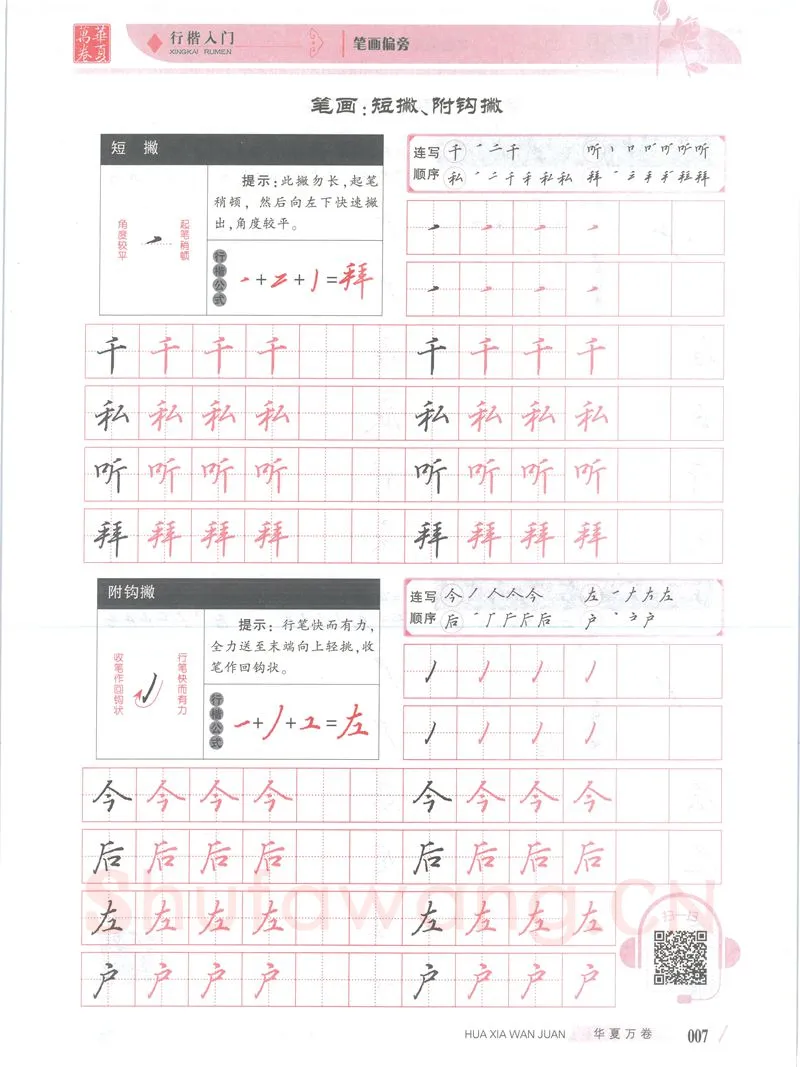 華夏萬卷
行楷入门
XINGKAI RUMEN
笔画偏旁
笔画：短撇、附钩撇
短 撇
角度较平
起笔稍顿
提示：此撇勿长，起笔
稍顿，然后向左下快速撇
出，角度较平。
行楷公式
一+二+丿=拜
连写 千 二千 听 听
顺序 私 二千私私 拜 拜
千千千千 千千千千
私私私私 私私私私
听听听听 听听听听
拜拜拜拜 拜拜拜拜
附钩撇
收笔作回钩状
行笔快而有力
提示：行笔快而有力，
全力送至末端向上轻挑，收
笔作回钩状。
行楷公式
一+丿+工=左
连写 今丿人今今 左一左
顺序 后厂后 户户
今今今今 今今今今
后后后后 后后后后
左左左左 左左左左
户户户户 户户户户
Shufawang.CN
扫一扫
HUA XIA WAN JUAN 华夏万卷 007